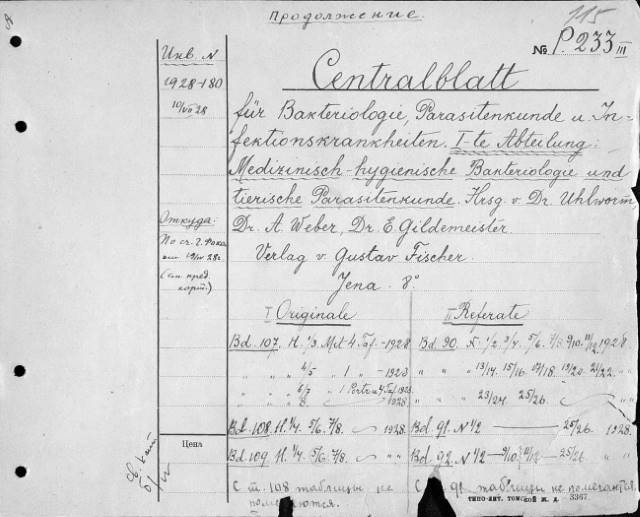 Продолжение.
115
№ P. 233 III
Инв. №
1928-180
10/VII 28
Откуда:
По сч. Г. Фока
от 19/IV 28 г.
Цена
Centralblatt
für Bakteriologie, Parasitenkunde u. In-
fektionskrankheiten. I-te Abteilung:
Medizinisch-hygienische Bakteriologie und
tierische Parasitenkunde. Hrsg. v. Dr. Uhlworm
Dr. A. Weber, Dr. E. Gildemeister.
Verlag v. Gustav Fischer.
Jena. 8°
I Originale
II Referate
Bd. 107. H. 1/3. Mit 4. Taf. - 1928
" " " 4/5 " 1 " - 1928
" " " 6/7 " 1 Portr. u. 4 Taf. 1928.
" " " 8. 1928.
Bd. 108. H. 1/4. 5/6. 7/8. 1928.
Bd. 109. H. 1/4. 5/6. 7/8. " "
С т. 108 таблицы не
помечаются.
Bd. 90. N. 1/2. 3/4. 5/6. 7/8. 9/10. 11/12. 1928
" " " 13/14. 15/16. 17/18. 19/20. 21/22. "
" " " 23/24 25/26.
Bd. 91. N. 1/2 — 25/26. 1928.
Bd. 92. N. 1/2 — 9/10 — 25/26 "
С 91 таблицы не помечаются.
ТИПО-ЛИТ. ТОМСКОЙ Ж. Д. 3367.